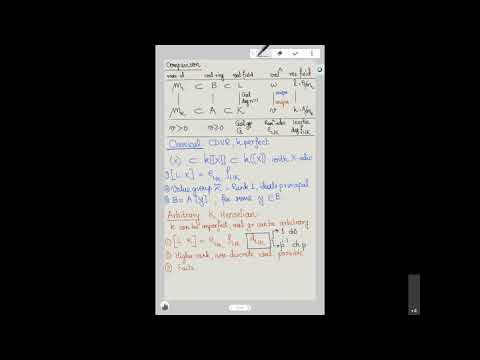 Comparison
max. id val. ring val. field val^n res. field
m_L ⊂ B ⊂ L ω l = B/m_L
| | | Gal deg n>1 unique
m_K ⊂ A ⊂ K v k = A/m_K
v>0 v≥0 Gal. gp G e_{L/K} f_{L/K}
Classical CDVR, k perfect
(X) ⊂ k[[X]] ⊂ k((X)) with X-adic
① [L:K] = e_{L/K} f_{L/K}
② Value group ℤ - Rank 1, ideals principal
③ B = A[y], for some y ∈ B.
Arbitrary K Henselian
k can be imperfect, val gr can be arbitrary
① [L:K] = e_{L/K} f_{L/K} d_{L/K} 1 ch 0
p^i ch p
② Higher rank, non-discrete val. possible
③ Fails.